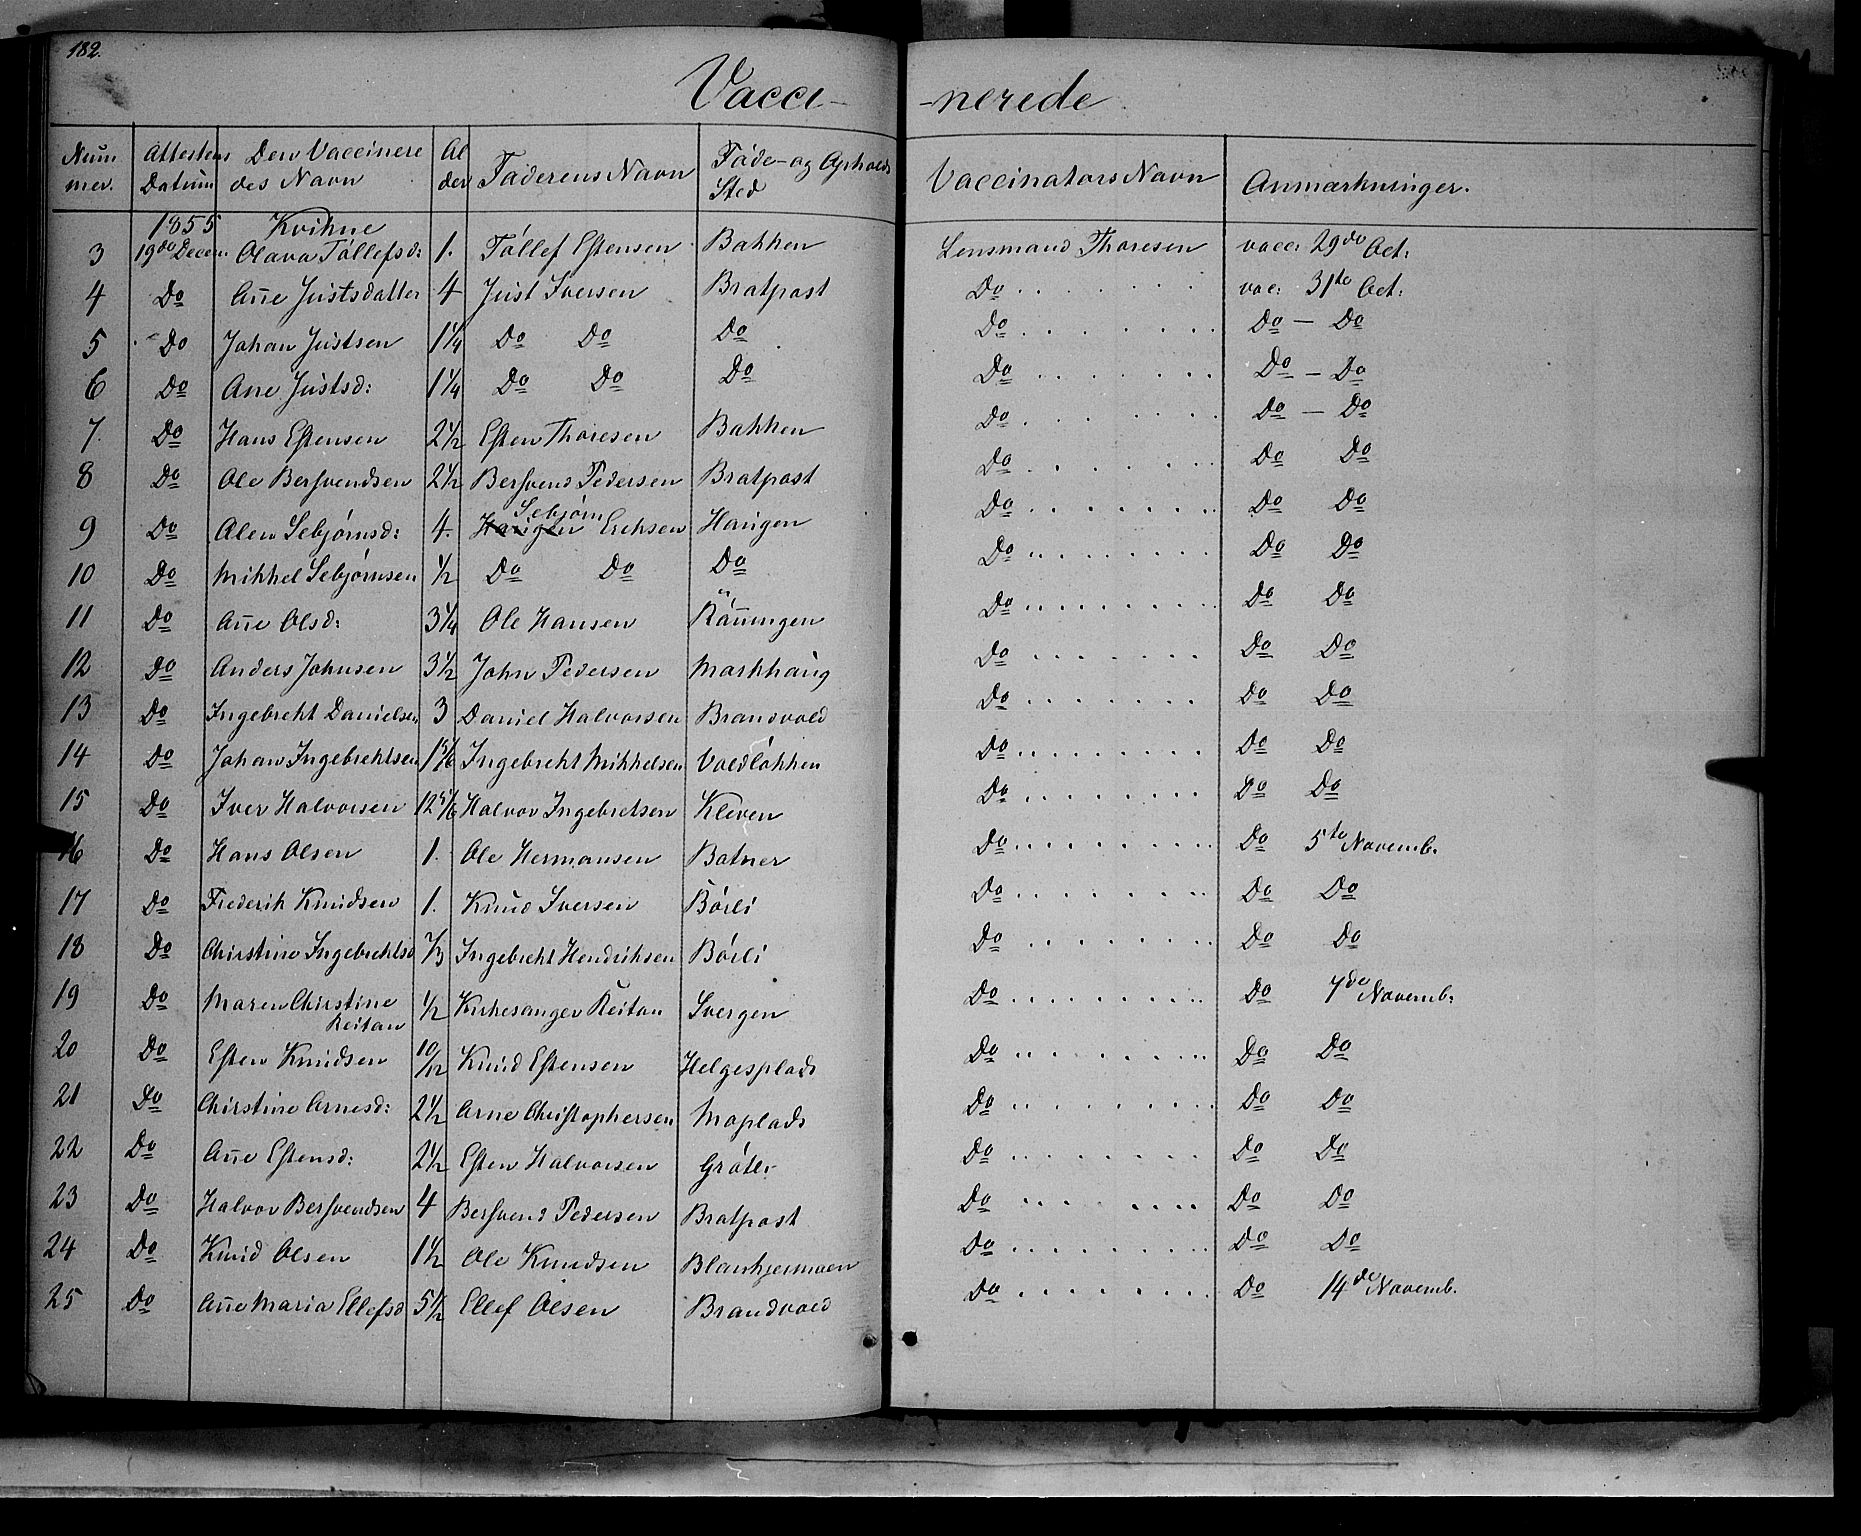 182.
Vacci- -nerede
Num Attestens Den Vaccinere Al Faderens Navn Føde- og Opholds Vaccinators Navn Anmærkninger.
mer. Datum des Navn der Sted
1855 Kvikne
3 19de Decem. Olava Tøllefsd: 1. Tøllef Estensen Bakken Lensmand Thoresen vacc: 29de Oct:
4 Do Ane Justsdatter 4 Just Iversen Bratpost Do vac: 31te Oct:
5 Do Johan Justsen 1 1/4 Do Do Do Do Do — Do
6 Do Ane Justsd: 1 1/4 Do Do Do Do Do — Do
7. Do Hans Estensen 2 1/2 Esten Thoresen Bakken Do Do — Do
8 Do Ole Bersvendsen 2 1/2 Bersvend Pedersen Bratpost Do Do Do
9 Do Alen Sebjørnsd: 4. Sebjørn Haugen Erichsen Haugen Do Do Do
10 Do Mikkel Sebjørnsen 1/2 Do Do Do Do Do Do
11 Do Ane Olsd: 3 1/4 Ole Hansen Do Do Do
12 Do Anders Johnsen 3 1/2 John Pedersen Moskhaug Do Do Do
13 Do Ingebreht Danielsen 3 Daniel Halvorsen Brandvold Do Do Do
14 Do Johan Ingebrehtsen 1 5/6 Ingebreht Mikkelsen Voldløkken Do Do Do
15 Do Iver Halvorsen 12 5/6 Halvor Ingebretsen Kleven Do Do Do
16 Do Hans Olsen 1. Ole Hermansen Batner Do Do 5te Novemb.
17 Do Frederik Knudsen 1. Knud Iversen Børli Do Do Do
18 Do Christine Ingebrehtsd 2/3 Ingebreht Hendriksen Børli Do Do Do
19 Do Maren Christine Reitan 1/2 Kirkesanger Reitan Svergen Do Do 7de Novemb:
20 Do Esten Knudsen 10/12 Knud Estensen Helgesplads Do Do Do
21 Do Christine Arnesd: 2 1/2 Arne Christophersen Moplads Do Do Do
22 Do Ane Estensd: 2 1/2 Esten Halvorsen Grøtli Do Do Do
23 Do Halvor Bersvendsen 4 Bersvend Pedersen Bratpost Do Do Do
24 Do Knud Olsen 1 1/2 Ole Knudsen Do Do Do
25 Do Ane Maria Ellefsd 5 1/2 Ellef Olsen Brandvold Do Do 14de Novemb.